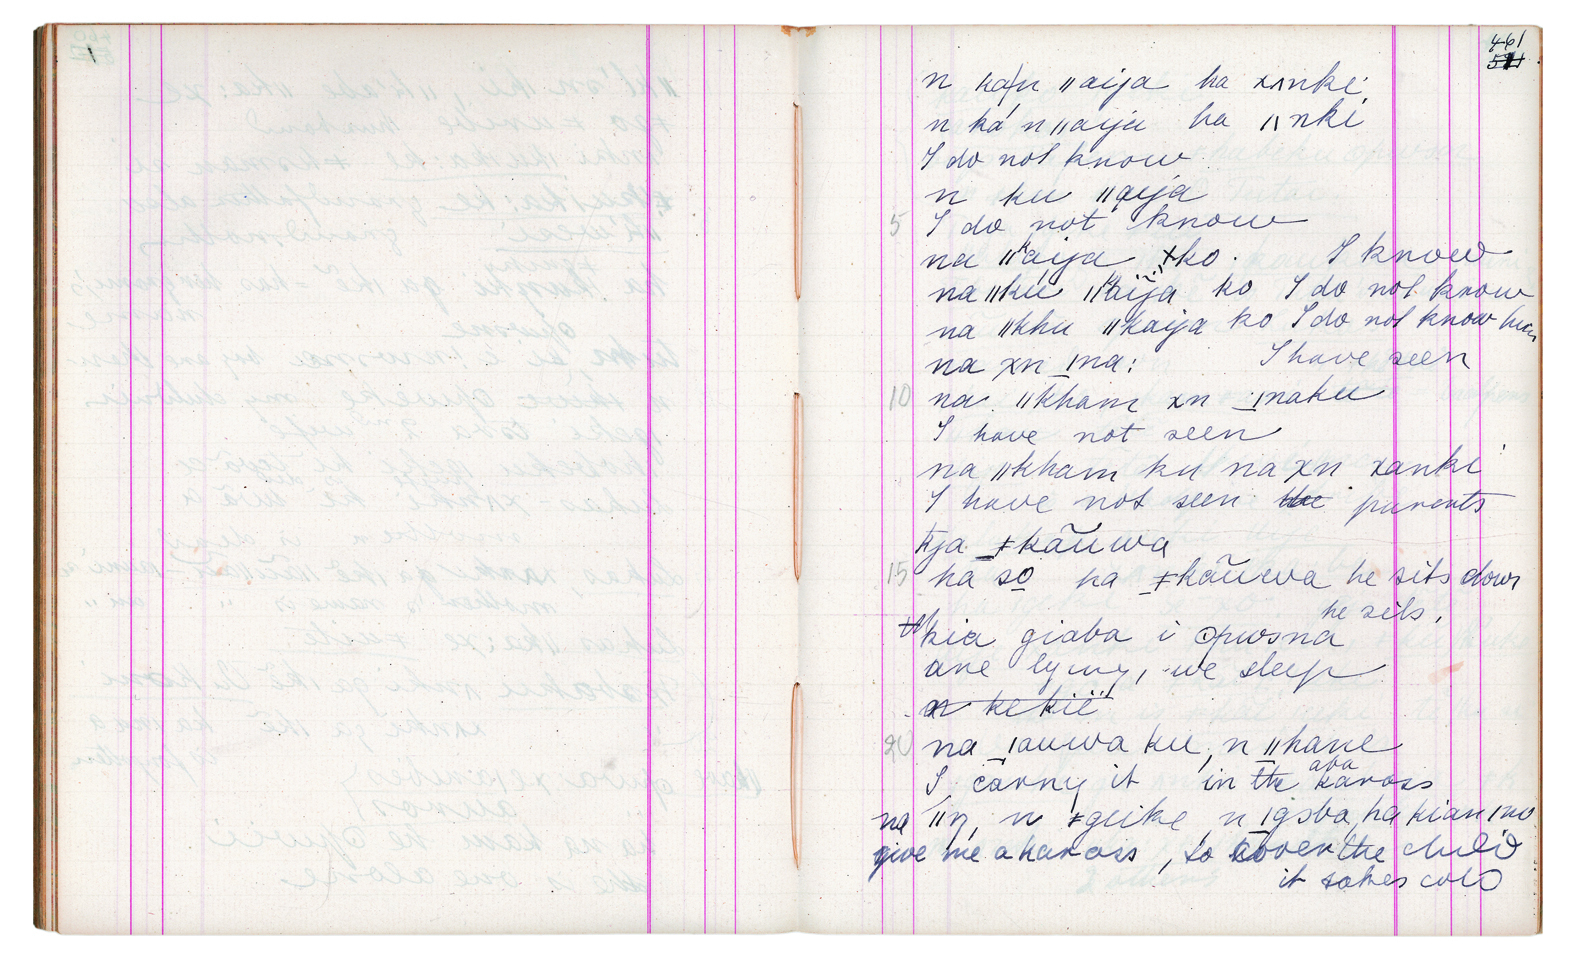 461
n ka/n ǁaija ha xanki
n ká n ǁaija ha ǀǀnki
I do not know
n ku ǁaija
5 I do not know
na ǁkaija ǂko. I know
na ǁkú ǁkaija ko I do not know
na ǁkhu ǁkaija ko I do not know him
na xn ǀna: I have seen
10 na ǁkham xn ǀnaku
I have not seen
na ǁkham ku na xn xanki
I have not seen the parents
kja ǂkãũwa
15 ha so ha ǂkãũwa he sits down
he sits,
kia giaba i ʘpwosna
are lying, we sleep
n kekië
20 na ǀauwa ku, n ǁhane
I carry it in the kaross
na ǁŋ, n ǂgeike n ǀgɔba ha kian ǀno
give me a kaross, to cover the child
it takes cold